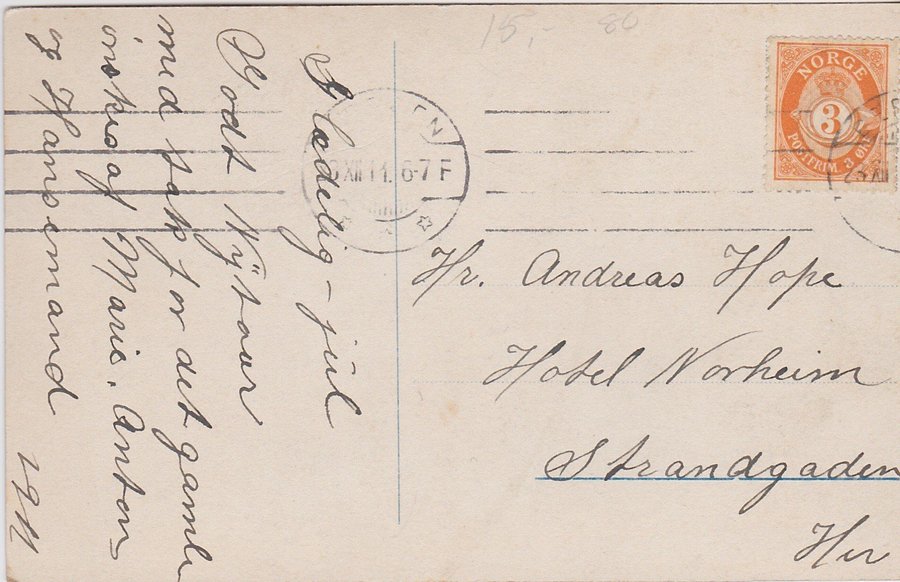 Glædelig - jul
Godt Nÿtaar
med tak for det gamle
ønskes af Marie. Anton
og Hansemand
1911
15,- 86
N
XII 11. 6-7 F
NORGE
3
POSTFRIM. 3 ØRE
23 XII
Hr. Andreas Hope
Hotel Norheim
Strandgaden
Her